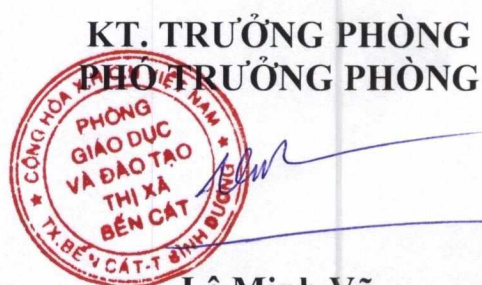 KT. TRƯỞNG PHÒNG
PHÓ TRƯỞNG PHÒNG
CỘNG HÒA XÃ VIỆT NAM
PHÒNG
GIÁO DỤC
VÀ ĐÀO TẠO
THỊ XÃ
BẾN CÁT
TX.BẾN CÁT-T BÌNH DƯƠNG
Minh